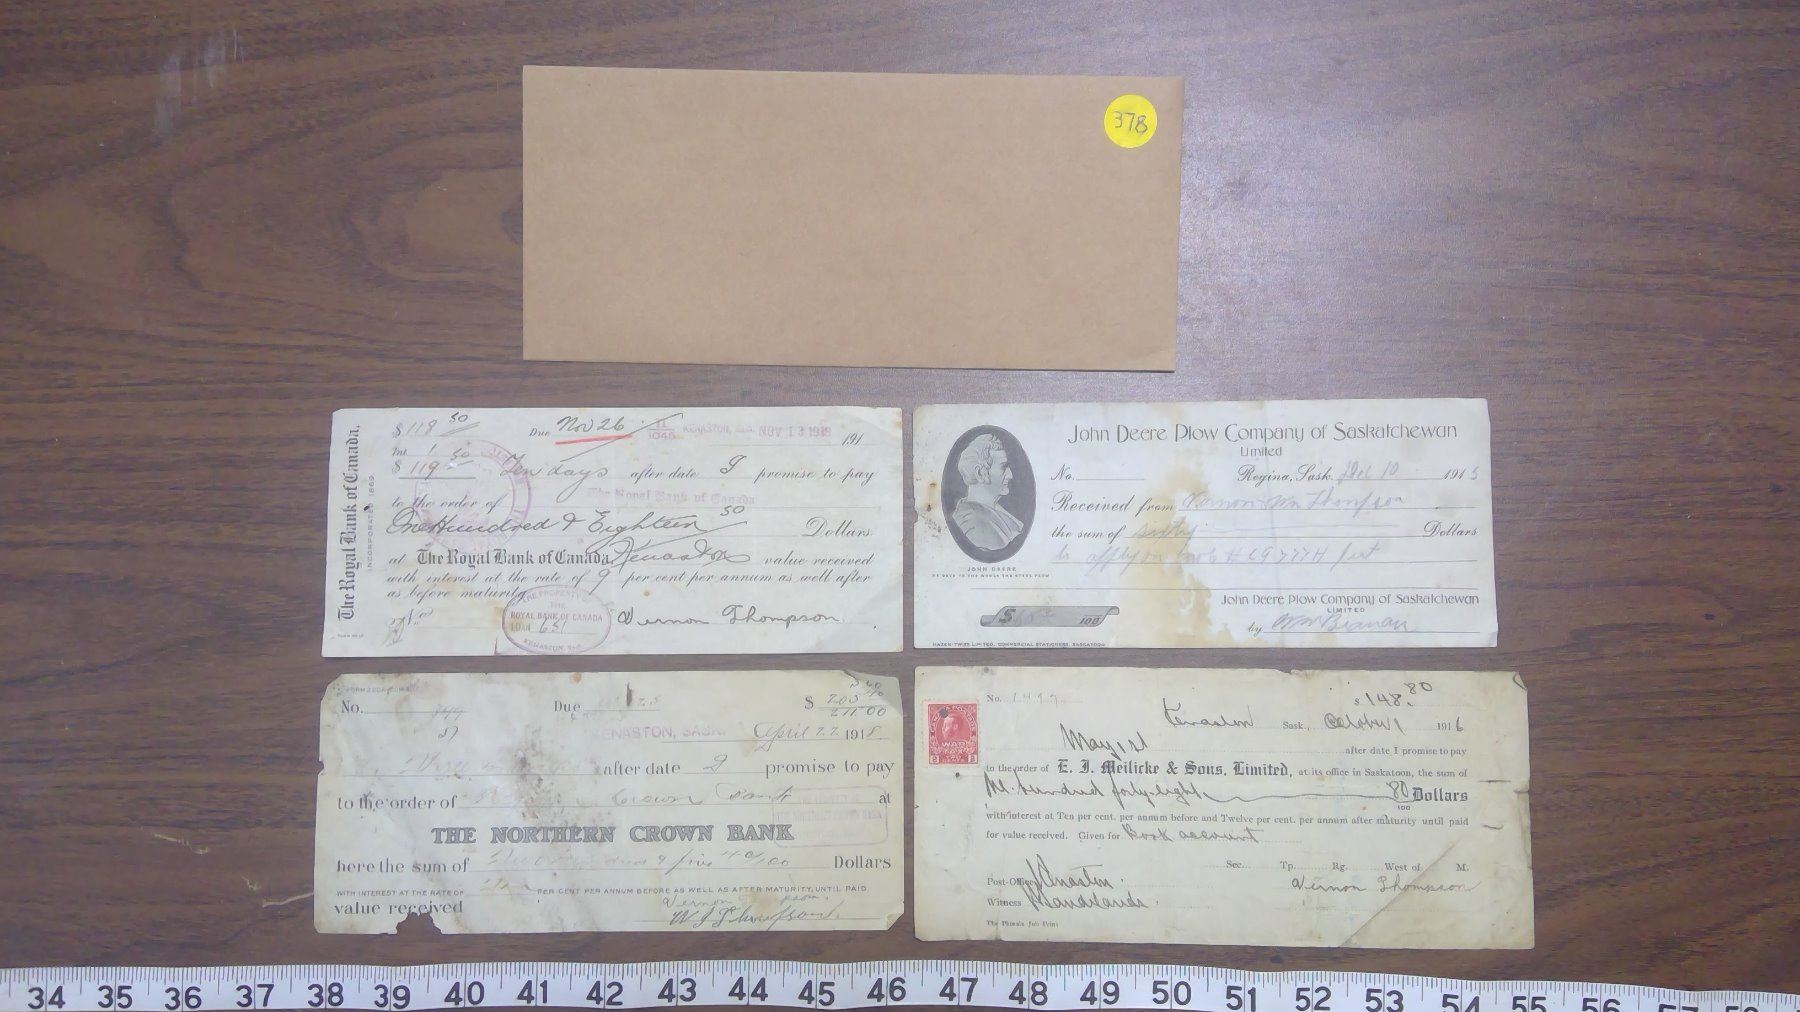 378
The Royal Bank of Canada.
INCORPORATED 1869
$118 50
Due Nov 26 11 1046 KENASTON, SASK. NOV 13 1919 191
Int 1.50
$119 Ten days after date I promise to pay
to the order of The Royal Bank of Canada
One Hundred & Eighteen 50 Dollars
at The Royal Bank of Canada Kenaston value received
with interest at the rate of 9 per cent per annum as well after
as before maturity
No
THE PROPERTY
THE
ROYAL BANK OF CANADA
LOAN 651
KENASTON, Sask
Vernon Thompson.
John Deere Plow Company of Saskatchewan
Limited
No. Regina, Sask. Dec 10 1915
Received from Vernon Wm Thompson
the sum of sixty Dollars
to apply on
JOHN DEERE
HE GAVE TO THE WORLD THE STEEL PLOW
John Deere Plow Company of Saskatchewan
LIMITED
$ 100
by
HAZEN-TWISS LIMITED, COMMERCIAL STATIONERS, SASKATOON
No. 849
Due
$ 205
211.00
KENASTON, SASK. April 22 1918
Three after date I promise to pay
to the order of Crown Bank at
THE NORTHERN CROWN BANK
here the sum of five 40/00 Dollars
WITH INTEREST AT THE RATE OF PER CENT PER ANNUM BEFORE AS WELL AS AFTER MATURITY, UNTIL PAID
value received
Vernon
W J Thompson.
No. 1497 $148.80
Kenaston Sask., October 1 1916
May 1st after date I promise to pay
to the order of E. J. Meilicke & Sons, Limited, at its office in Saskatoon, the sum of
hundred forty-eight 80 100 Dollars
with interest at Ten per cent. per annum before and Twelve per cent. per annum after maturity until paid
for value received. Given for Book account
Sec. Tp. Rg. West of M.
Post-Office Kenaston.
Vernon Thompson
Witness
The Phoenix Job Print
CANADA POSTAGE
WAR
TAX
2 2
34 35 36 37 38 39 40 41 42 43 44 45 46 47 48 49 50 51 52 53 54 55 56 57 58